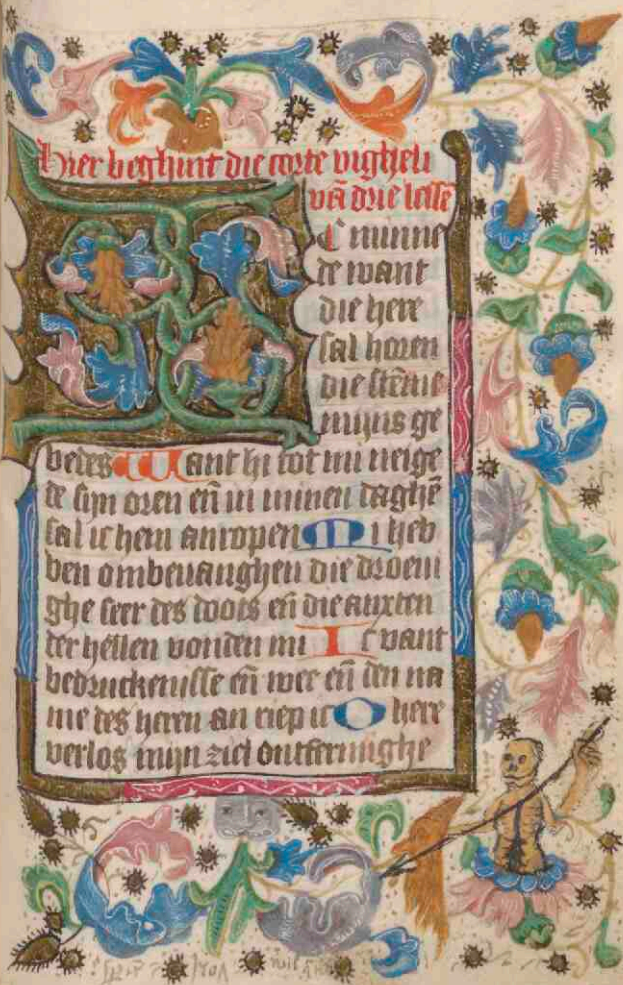 Hier beghint die corte vigheli
vā drie lessē
IC minne
de want
die here
sal horen
die stēme
mijns ge
bedes Want hi tot mi neige
de sijn oren eñ in minen daghē
sal ic hem anropen Mi heb
ben ombevanghen die droeui
ghe seer des doots eñ die anxten
der hellen vonden mi Ic vant
bedruckenisse eñ wee eñ den na
me des heren an riep ic O here
verlos mijn ziel ontfermighe